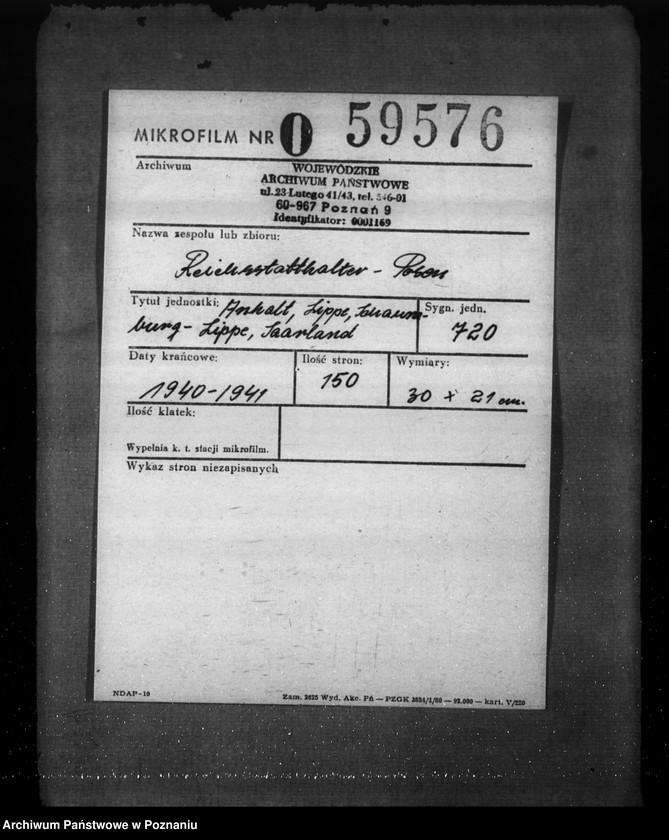 MIKROFILM NR O 59576
Archiwum
WOJEWÓDZKIE
ARCHIWUM PAŃSTWOWE
ul. 23 Lutego 41/43, tel. 546-01
60-967 Poznań 9
Identyfikator: 0001169
Nazwa zespołu lub zbioru:
Reichsstatthalter - Posen
Tytuł jednostki: Anhalt, Lippe, Schaum-
burg-Lippe, Saarland
Sygn. jedn.
720
Daty krańcowe:
1940-1941
Ilość stron:
150
Wymiary:
30 x 21 cm.
Ilość klatek:
Wypełnia k. t. stacji mikrofilm.
Wykaz stron niezapisanych
NDAP-10
Zam. 2625 Wyd. Akc. Pń — PZGK 3634/1/80 — 92.000 — kart. V/220
Archiwum Państwowe w Poznaniu